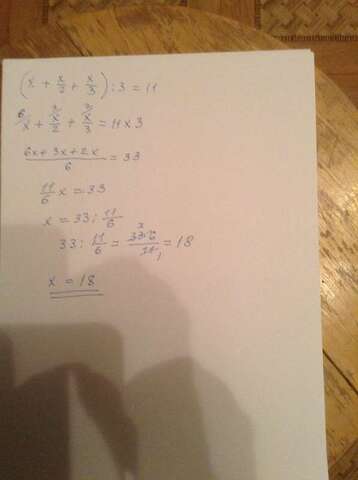 (x + x/2 + x/3) : 3 = 11
6/x + 3/x/2 + 2/x/3 = 11 x 3
6x + 3x + 2x / 6 = 33
11/6 x = 33
x = 33 : 11/6
33 : 11/6 = 33·6/11 1 = 18
x = 18